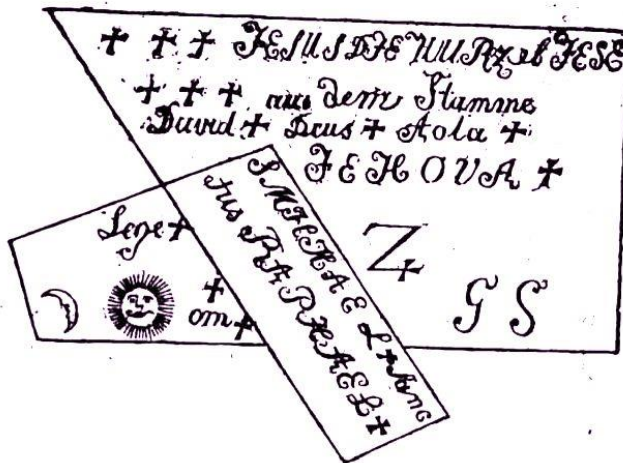 ✝ ✝ ✝ JESUS DJE WURZel JESE
✝ ✝ ✝ aus dem Stamme
David ✝ Deus ✝ Aola ✝
JEHOVA ✝
SMJCHAEL ✝ Anc
tus RAPHAEL ✝
Lege ✝
✝
om ✝
Z
G S